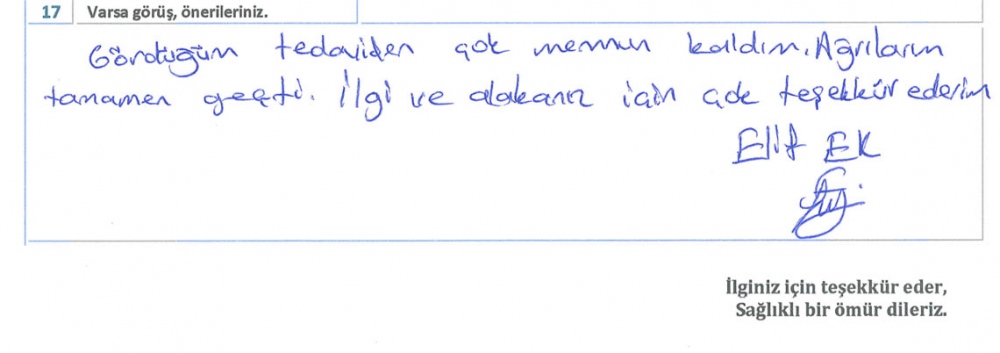 17 Varsa görüş, önerileriniz.
Gördüğüm tedaviden çok memnun kaldım. Ağrılarım
tamamen geçti. İlgi ve alakanız için çok teşekkür ederim
Elif EK
İlginiz için teşekkür eder,
Sağlıklı bir ömür dileriz.